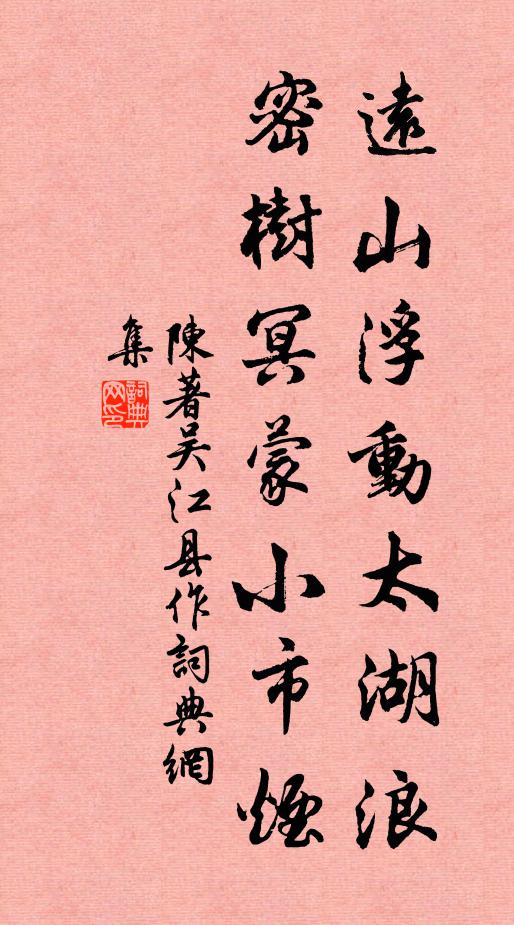 遠山浮動太湖浪
密樹冥蒙小市煙
陳著吴江县作詞典網
集
詞典
网印